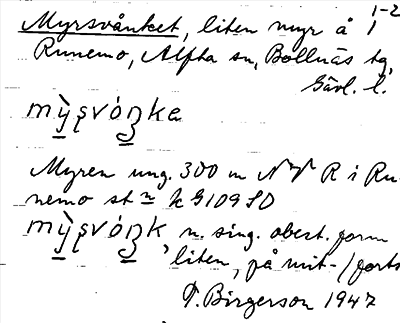 Myrsvånket, liten myr å 1 1-2
Runemo, Alfta sn, Bollnäs tg,
Gävl. l.
mỳʂvóŋka
Myren ung. 300 m NNV R i Ru-
nemo stn k G109 SO
mỳʂvóŋk, n. sing. obest. form
liten, på mit-/forts
T. Birgerson 1947